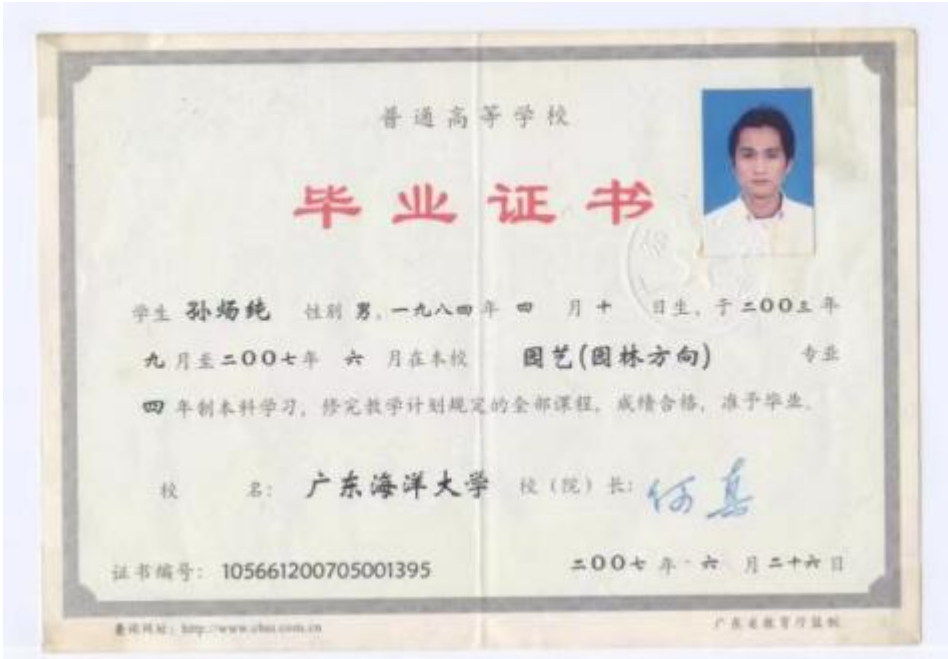 普通高等学校
毕业证书
学生 孙炀纯 性别 男, 一九八四年 四 月 十 日生, 于二〇〇三年
九 月至二〇〇七年 六 月在本校 园艺(园林方向) 专业
四 年制本科学习, 修完教学计划规定的全部课程, 成绩合格, 准予毕业.
校 名: 广东海洋大学 校(院)长: 何真
证书编号: 105661200705001395 二〇〇七 年 六 月二十六日
查询网址: http://www.chsi.com.cn 广东省教育厅监制